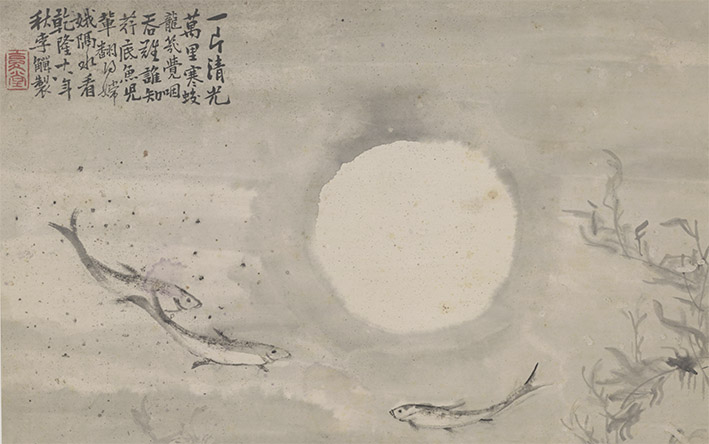 一片清光
萬里寒蛟
龍气覺咽
吞難誰知
荇底魚兒
輩翻与嫦
娥隔水看
乾隆十八年
秋李觶製